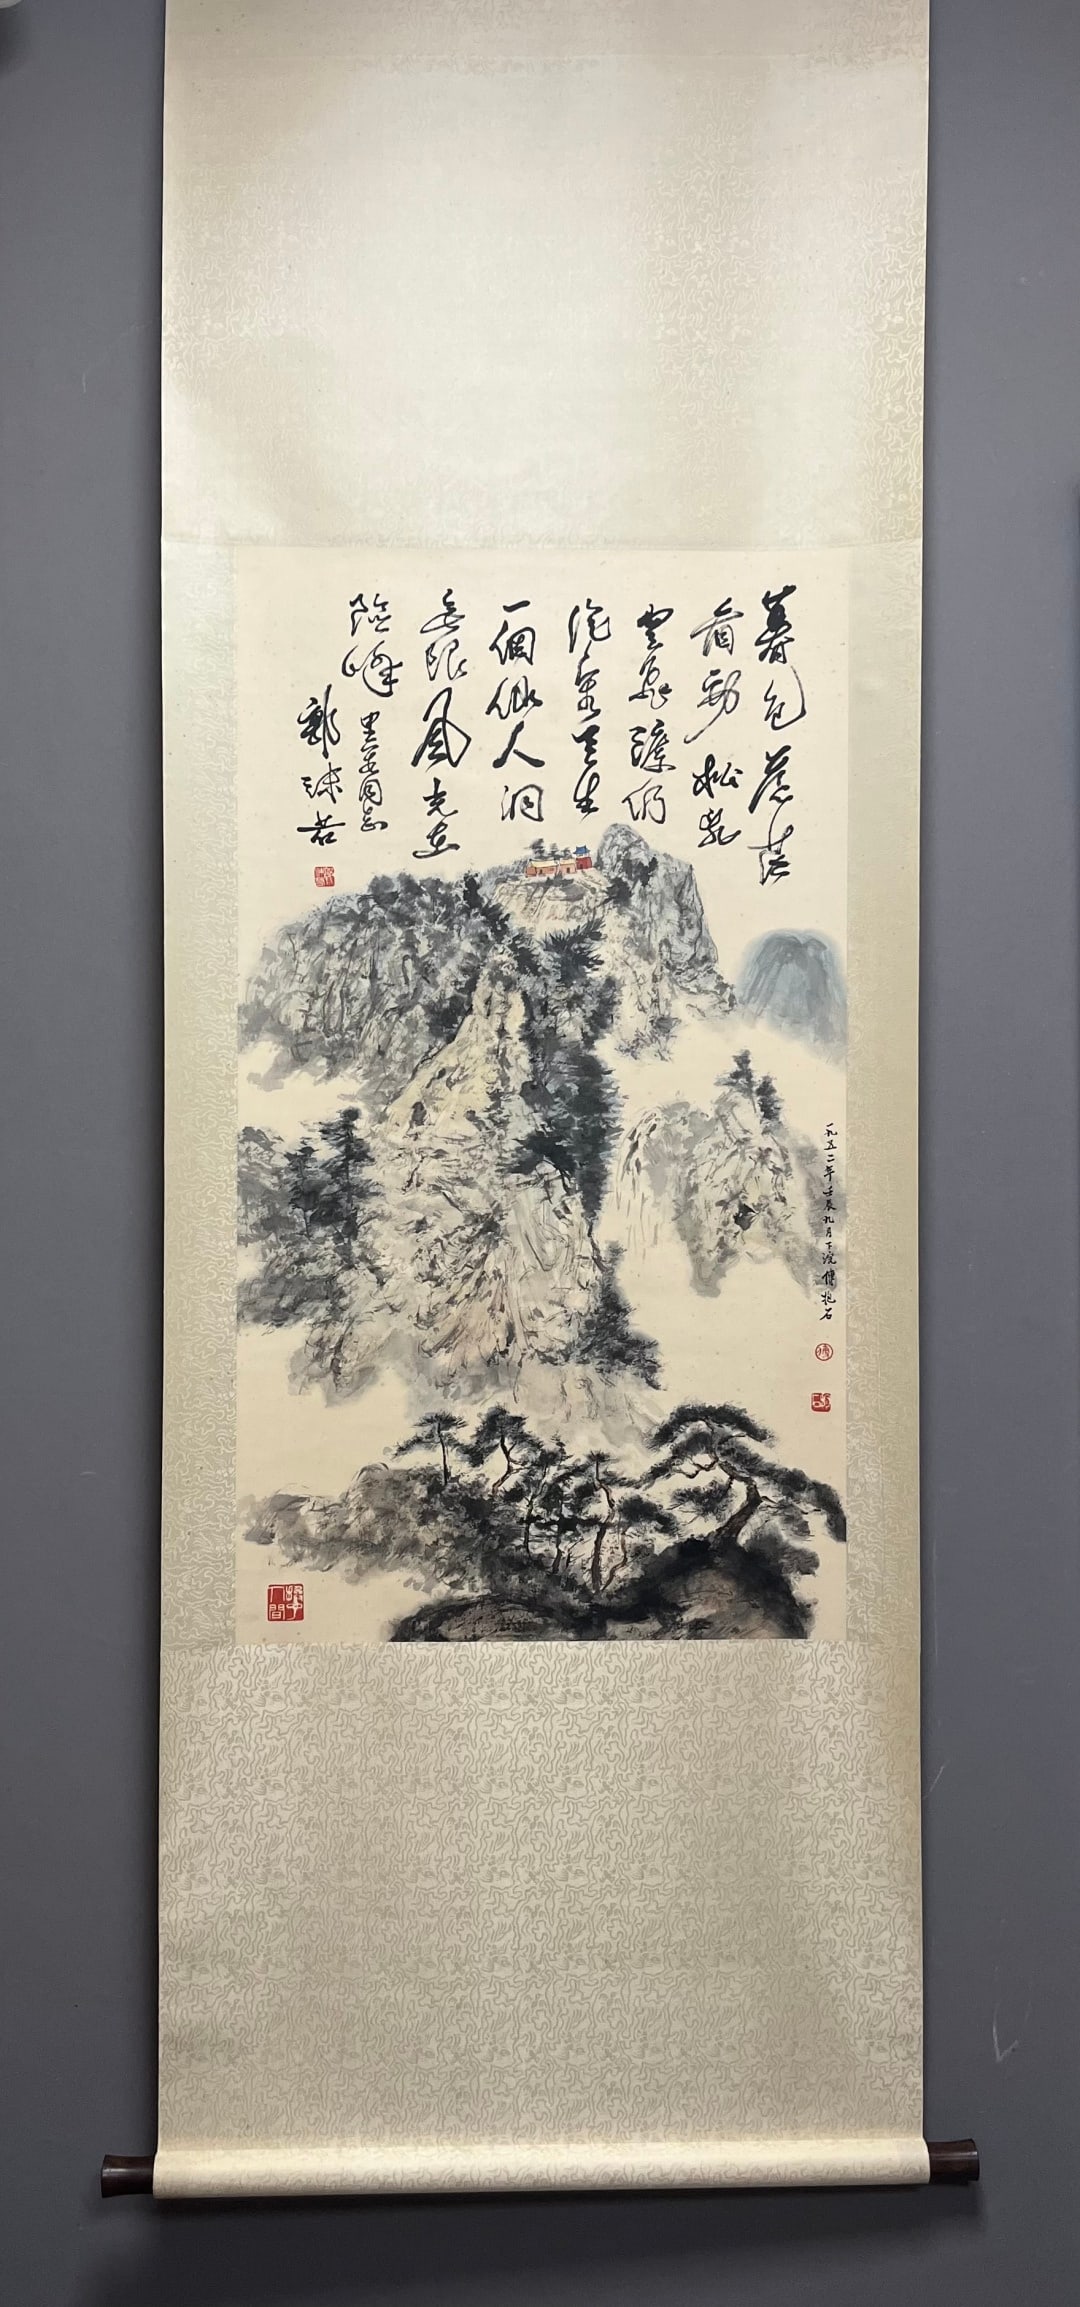 暮色蒼茫
看勁松亂
雲飛渡仍
從容天生
一個仙人洞
無限風光在
險峰
同志
郭沫若
一九五二年壬辰九月下浣傅抱石